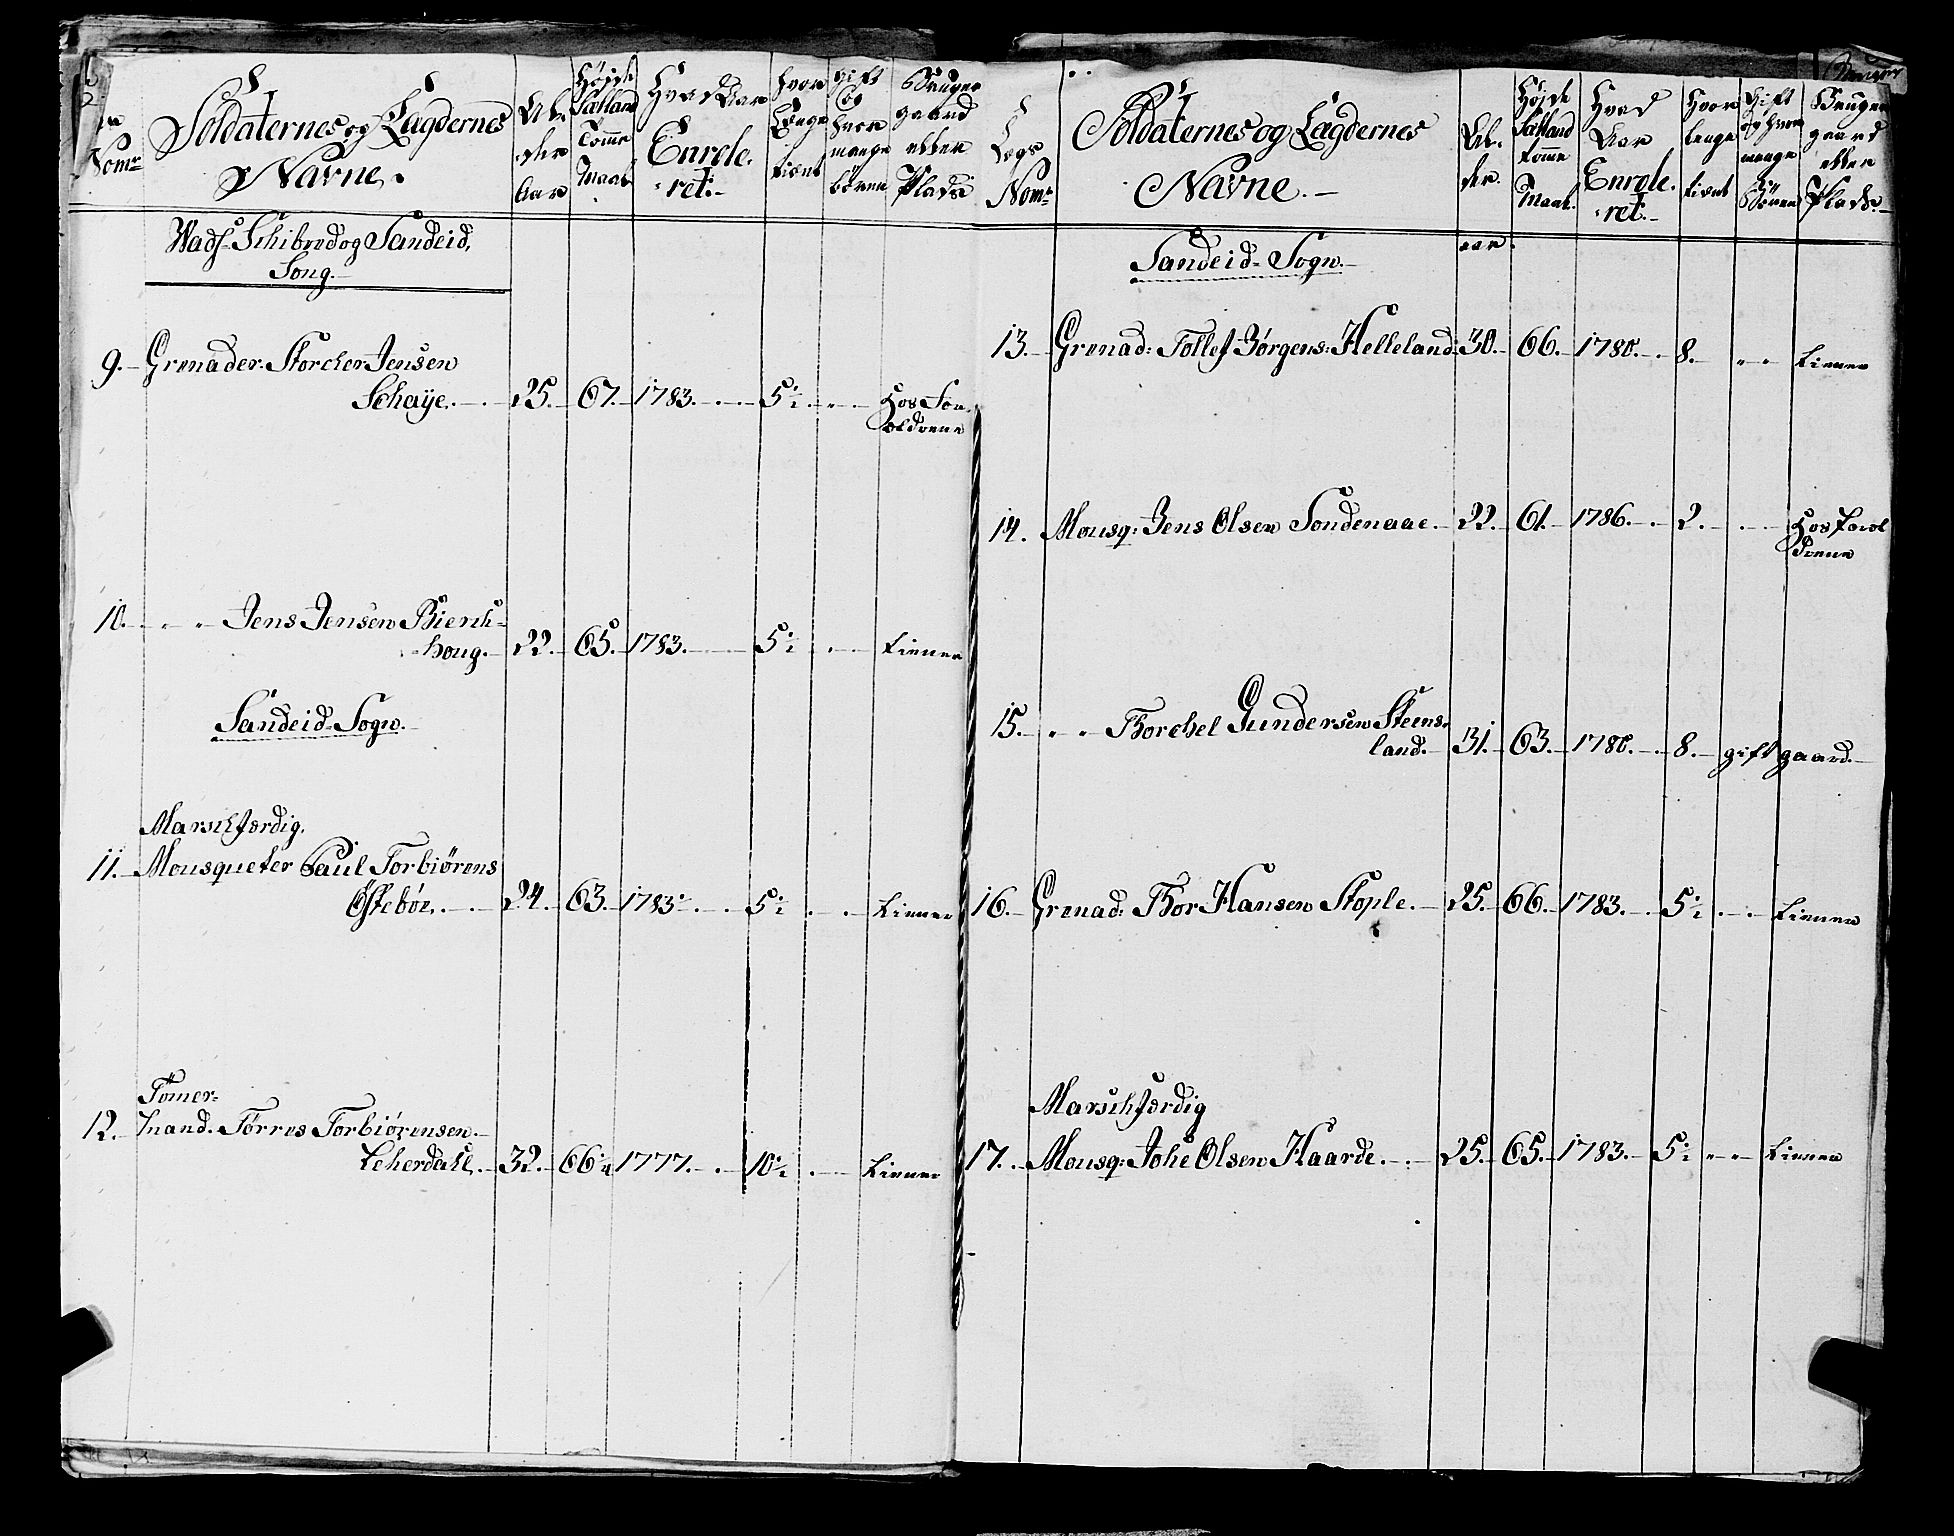 Nom:
Soldaternes og Lægdernes
Navne.
Al-
der
Aar
Høyde
Siælland
Tomme
Maal
Hvad Aar
Enrole-
ret.
hvor
Længe
tient
gift
og
hvor
mange
börn
Bruger
gaard
eller
Plads
Wads- Schibred og Sandeid,
Song.
9. Grenader Storcher Jensen
Schaye. 25. 67. 1783. 5½ hos For-
ældrene
10. " " Jens Jensen Bierch-
houg. 22. 65. 1783. 5½ tiener
Sandeid Sogn.
Marschfærdig.
11. Mousqueter Paul Torbiörens
Østebøe. 24. 63. 1783. 5½ tiener
Tömer-
12. mand. Törres Torbiörensen
Leherdahl. 32. 66¼ 1777. 10½ tiener
Lægs
Nom:
Soldaternes og Lægdernes
Navne.
Al-
der.
aar.
Høyde
Siælland
tomme
Maal.
Hvad
Aar
Enrole-
ret.
Hvor
længe
tient
Gift
og hvor
mange
Börn
Bruger
gaard
eller
Plads.
Sandeid Sogn.
13. Grenad: Tollef Börgens: Helleland 30. 66. 1780. 8. " " tiener
14. Mousq: Jens Olsen Sondenaae. 22. 61. 1786. 2. hos
15. " " Thorchel Gundersen Steens-
land. 31. 63. 1780. 8. gift gaard.
16. Grenad: Thor Hansen Stople. 25. 66. 1783. 5½ tiener
Marschfærdig
17. Mousq: Johe Olsen Haarde. 25. 65. 1783. 5½ " " tiener